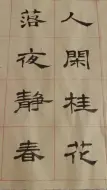 人閑桂花
落夜靜春